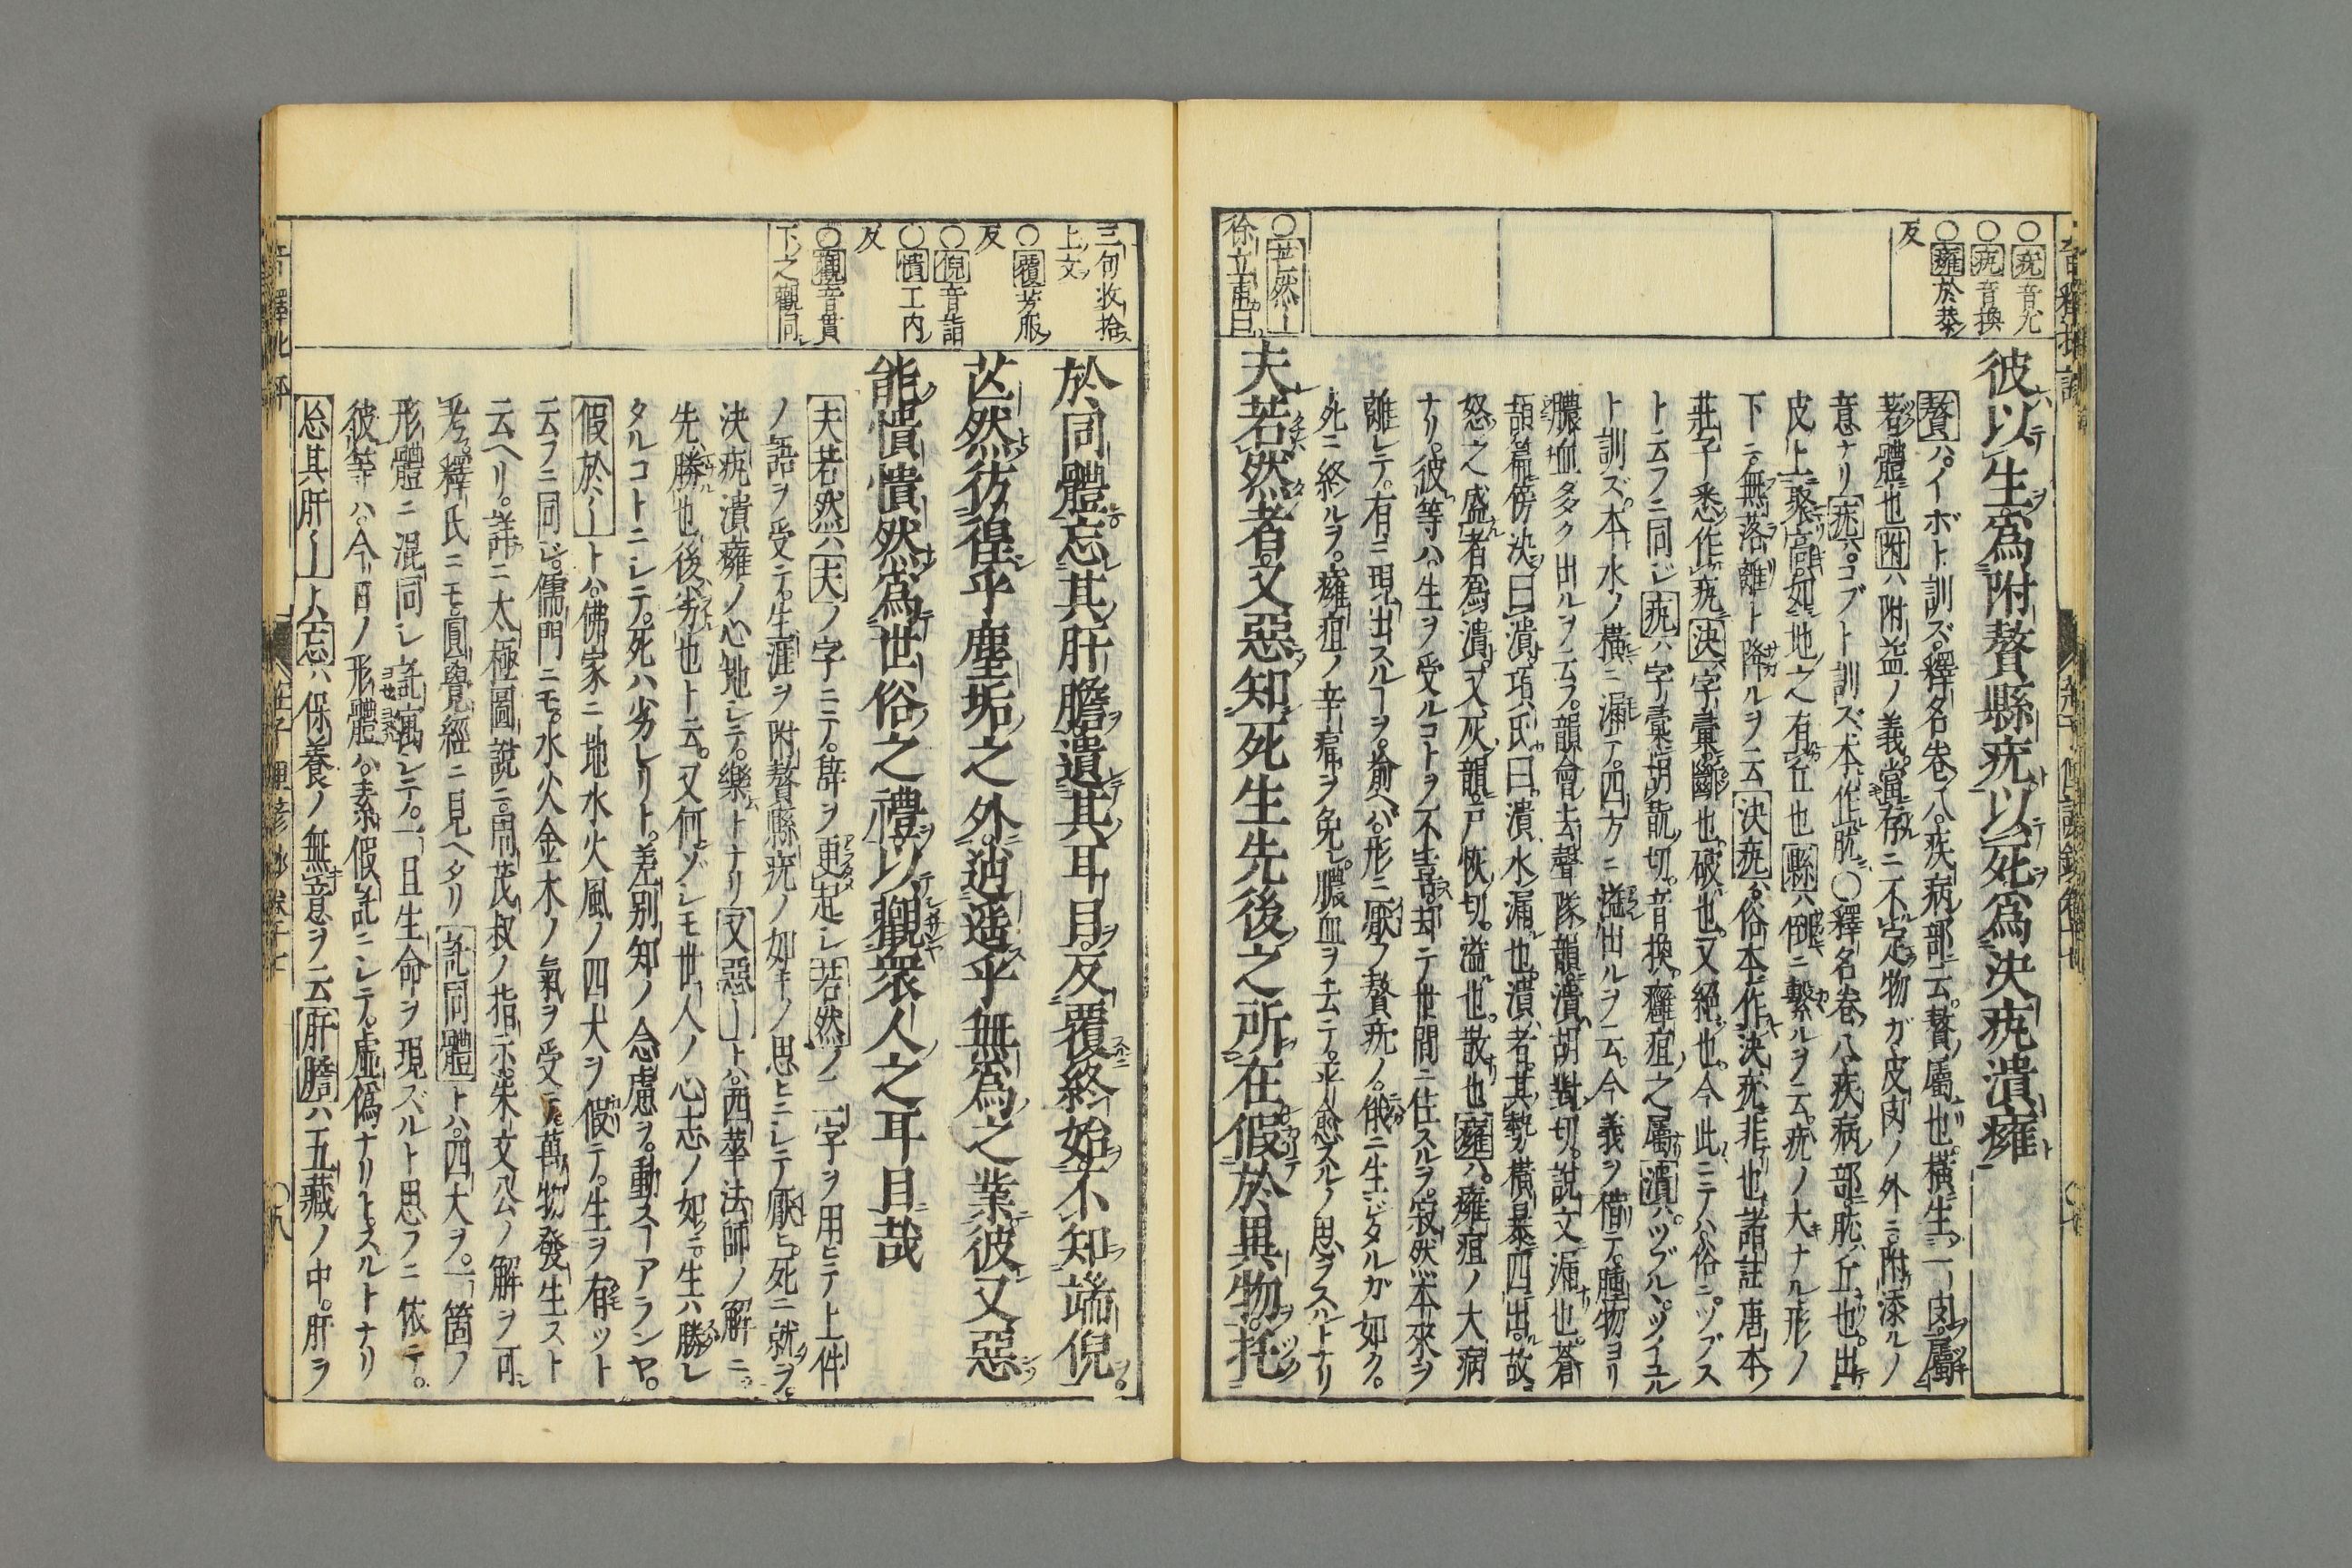 ○疣音尤
○疣音換
○癰於恭
反
彼以生爲附贅縣疣以死爲決疣潰癰
贅ハイボト訓ズ釋名卷八疾病部云贅屬也橫生一肉屬
著體也附ハ附益ノ義當存ニ不定物ガ皮肉ノ外ニ附添ルノ
意ナリ疣ハコブト訓ズ本作肬○釋名卷八疾病部肬丘也出
皮上聚高如地之有丘也縣ハ倒ニ繫ルヲ云疣ノ大ナル形ノ
下ニ無落離ト降ルヲ云決疣ハ俗本作決疣非也諸註唐本
莊子悉作疣決字彙斷也破也又絕也今此ニテハ俗ニツブス
ト云フニ同ジ疣ハ字彙胡翫切音換癰疽之屬潰ハツブルツイユル
ト訓ズ本水ノ橫ニ漏テ四方ニ溢出ルヲ云今義ヲ借テ腫物ヨリ
膿血多ク出ルヲ云フ韻會去聲隊韻潰胡對切說文漏也蒼
頡篇傍決曰潰項氏曰潰水漏也潰者其勢橫暴四出故
怒之盛者爲潰又灰韻戸恢切溢也散也癰ハ癰疽ノ大病
ナリ彼等ハ生ヲ受ルコトヲ不喜却テ世間ニ住スルヲ寂然本來ヲ
離レテ有ニ現出スルーヲ喻ヘバ形ニ厭フ贅疣ノ俄ニ生ジタルガ如ク
死ニ終ルヲ癰疽ノ辛痛ヲ免レ膿血ヲ去テ平愈スルノ思ヲスルトナリ
○若然ー
徐立甫曰
夫若然者又惡知死生先後之所在假於異物托
三句收拾
上文
○覆芳服
反
○倪音詣
○憒工内
反
○觀音貫
下之觀同
於同體忘其肝膽遺其耳目反覆終始不知端倪
芒然彷徨乎塵垢之外逍遥乎無爲之業彼又惡
能憒憒然爲世俗之禮以觀衆人之耳目哉
夫若然ハ夫ノ字ニテ辭ヲ更起シ若然ノ二字ヲ用ヒテ上件
ノ語ヲ受テ生涯ヲ附贅縣疣ノ如キノ思ヒニシテ厭ヒ死ニ就ヲ
決疣潰癰ノ心地シテ樂トナリ又惡ートハ西華法師ノ解ニ
先勝也後劣也ト云又何ゾシモ世人ノ心志ノ如ニ生ハ勝レ
タルコトニシテ死ハ劣レリト差別知ノ念慮ヲ動スーアランヤ
假於ートハ佛家ニ地水火風ノ四大ヲ假テ生ヲ有ツト
云フニ同ジ儒門ニモ水火金木ノ氣ヲ受テ萬物發生スト
云ヘリ詳ニ太極圖說ニ周茂叔ノ指示朱文公ノ解ヲ可
考釋氏ニモ圓覺經ニ見ヘタリ託同體トハ四大ヲ一箇ノ
形體ニ混同シ託寓シテ一旦生命ヲ現ズルト思フニ依テ
彼等ハ今日ノ形體ハ素假託ニシテ虛僞ナリトスルトナリ
忘其肝ート忘ハ保養ノ無意ヲ云肝膽ハ五藏ノ中肝ヲ
○八